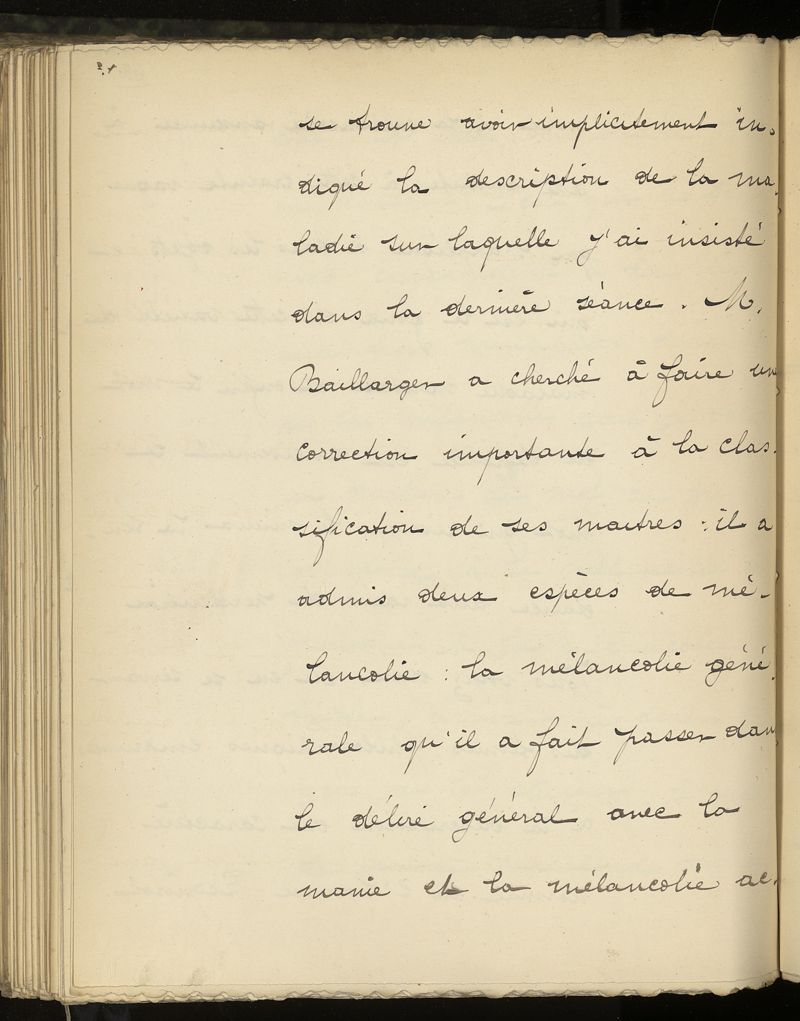 se trouve avoir implicitement in-
diqué la description de la ma-
ladie sur laquelle j'ai insisté
dans la dernière séance. M.
Baillarger a cherché à faire une
correction importante à la clas-
sification de ses maitres : il a
admis deux espèces de mé-
lancolie : la mélancolie géné-
rale qu'il a fait passer dans
le délire général avec la
manie et la mélancolie ac-